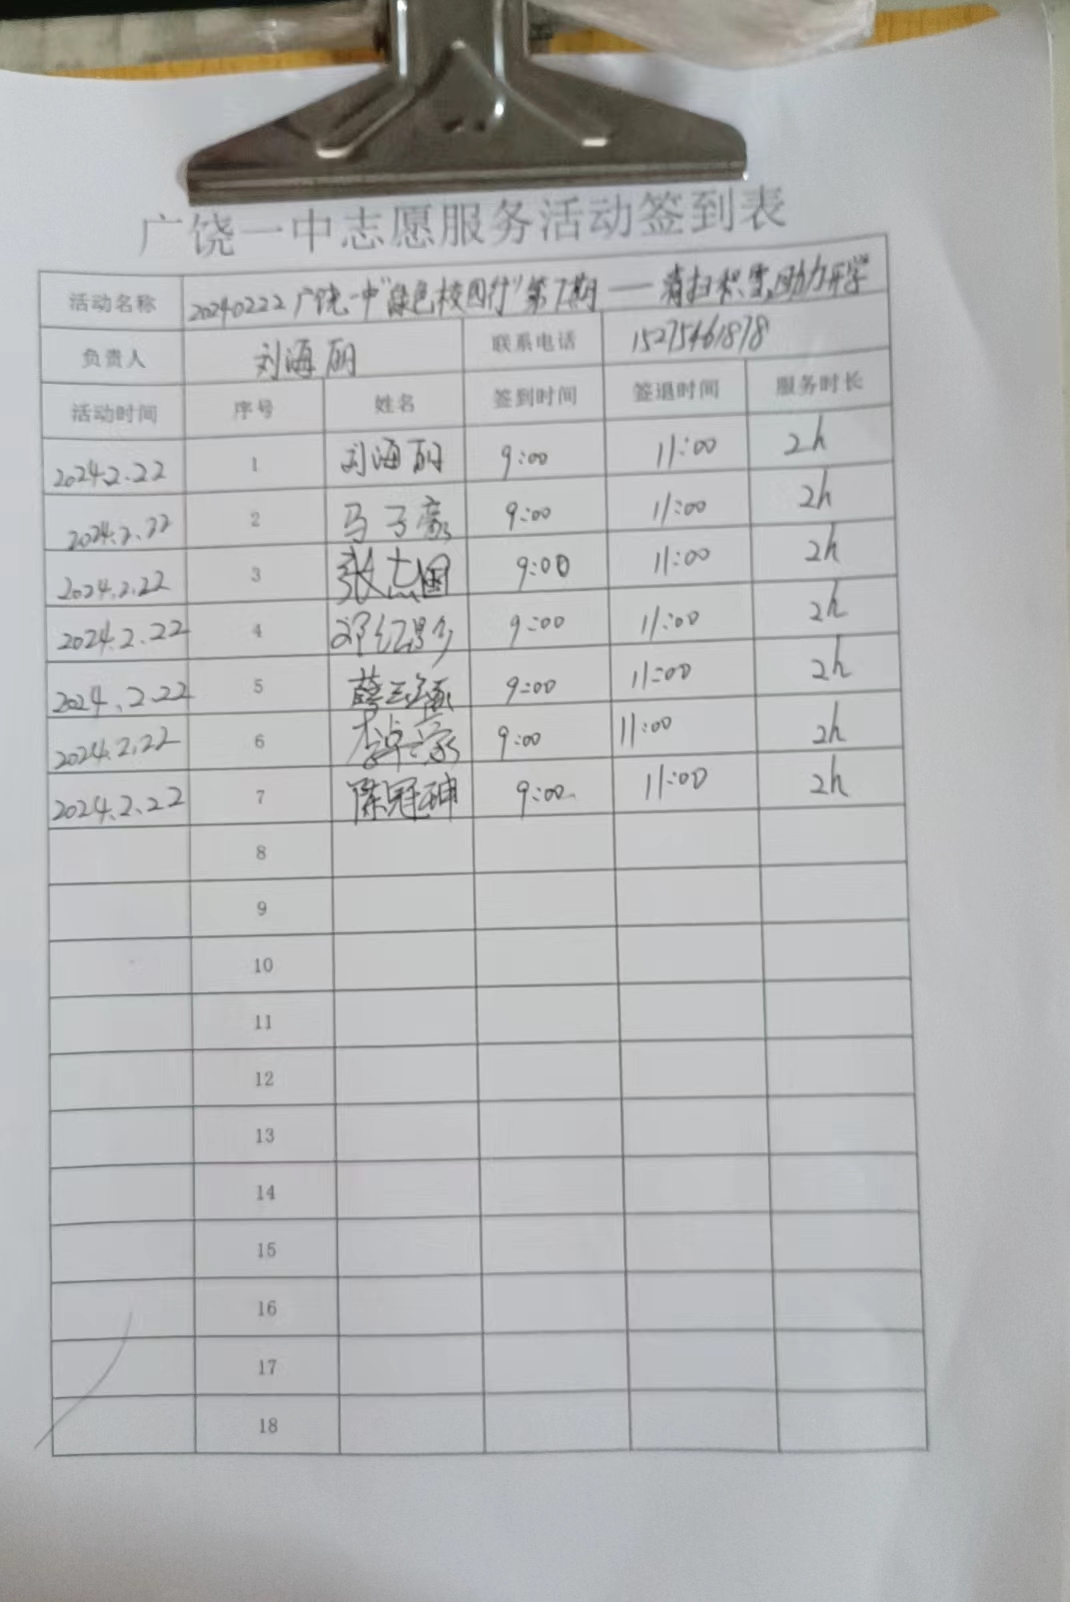 广饶一中志愿服务活动签到表
活动名称 20240222广饶一中"绿色校园行"第7期——清扫积雪,助力开学
负责人 刘海丽 联系电话 15275461878
活动时间 序号 姓名 签到时间 签退时间 服务时长
2024.2.22 1 刘海丽 9:00 11:00 2h
2024.2.22 2 马子豪 9:00 11:00 2h
2024.2.22 3 张志国 9:00 11:00 2h
2024.2.22 4 9:00 11:00 2h
2024.2.22 5 9:00 11:00 2h
2024.2.22 6 李卓豪 9:00 11:00 2h
2024.2.22 7 陈冠 9:00 11:00 2h
8
9
10
11
12
13
14
15
16
17
18